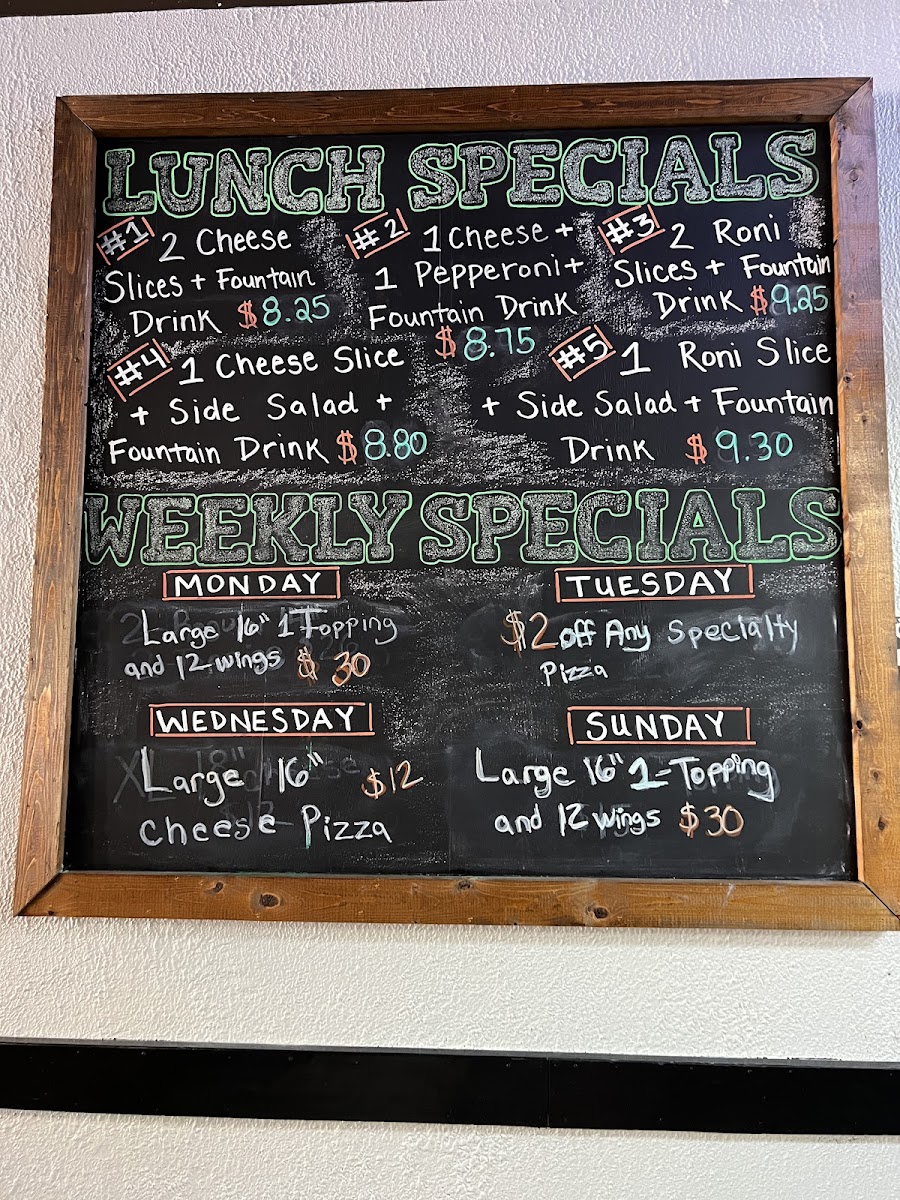 LUNCH SPECIALS
#1 2 Cheese
Slices + Fountain
Drink $8.25
#2 1 Cheese +
1 Pepperoni +
Fountain Drink
$8.75
#3 2 Roni
Slices + Fountain
Drink $9.25
#4 1 Cheese Slice
+ Side Salad +
Fountain Drink $8.80
#5 1 Roni Slice
+ Side Salad + Fountain
Drink $9.30
WEEKLY SPECIALS
MONDAY
Large 16" 1 Topping
and 12 wings $30
TUESDAY
$2 off Any Specialty
Pizza
WEDNESDAY
Large 16" $12
cheese Pizza
SUNDAY
Large 16" 1-Topping
and 12 wings $30